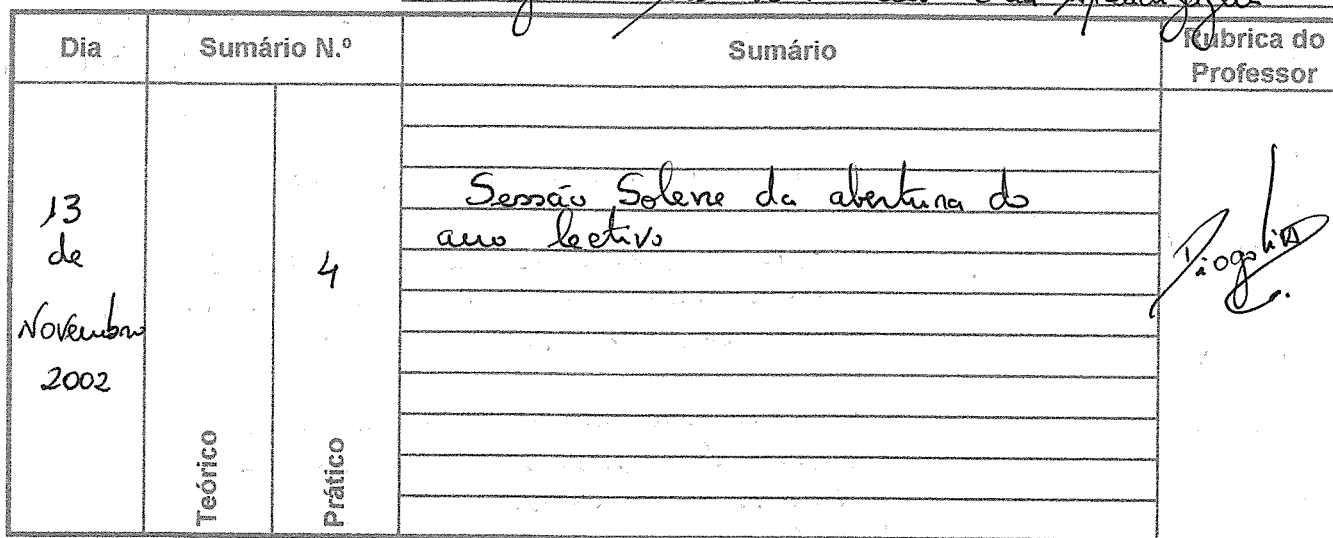 Dia
Sumário N.º
Sumário
Rubrica do
Professor
13
de
Novembro
2002
Teórico
4
Prático
Sessão Solene da abertura do
ano lectivo
Diogo